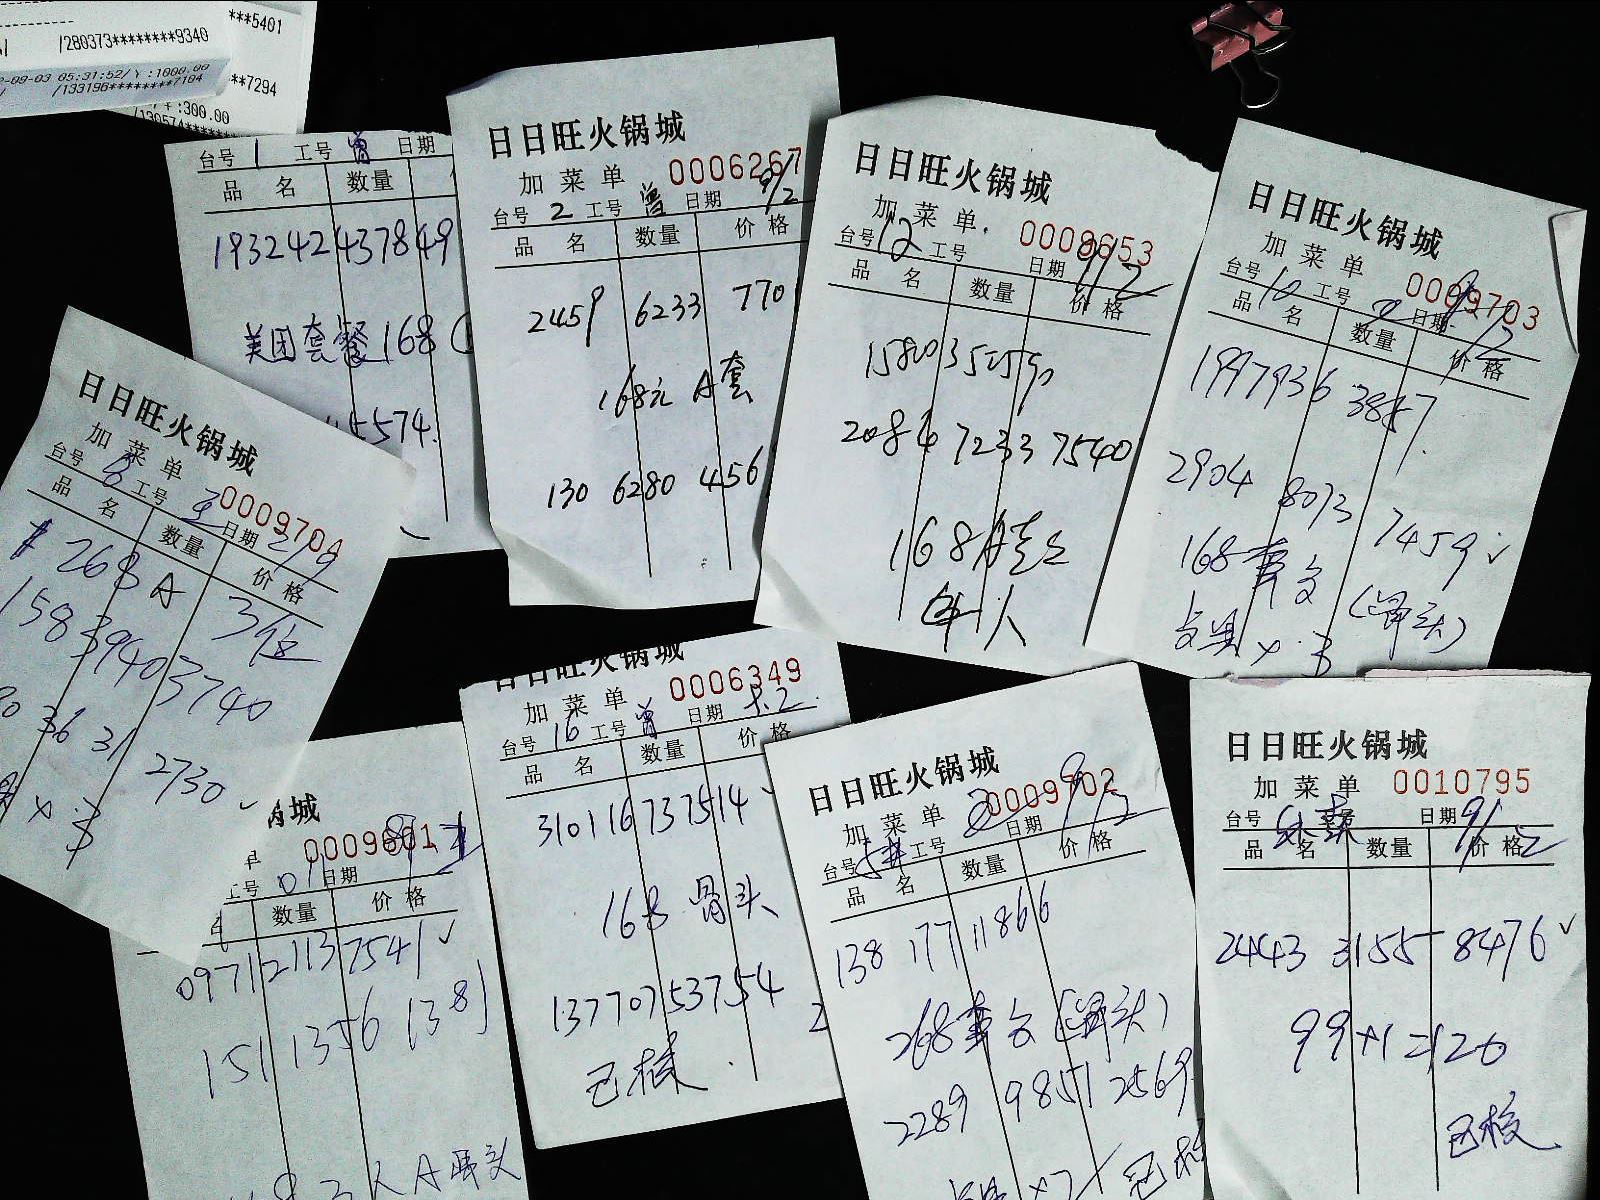 ***5401
/280373********9340
2-09-03 05:31:52/￥:1000.00
/133196********7104
**7294
:300.00
/130574*******
台号 1 工号 曾 日期
品 名 数量
193242437849
美团套餐168
5574.
日日旺火锅城
加菜单 0006267
台号 2 工号 曾 日期 9/2
品 名 数量 价格
2459 6233 770
168元 A套
130 6280 456
日日旺火锅城
加菜单 0009653
台号 12 工号 日期 9/2
品 名 数量 价格
2084 7233 7540
168A
日日旺火锅城
加菜单 0009703
台号 10 工号 日期 9/2
品 名 数量 价格
1997936 3857
2904 8073 7459 ✓
168 (骨头)
x 3
日日旺火锅城
加菜单 0009704
台号 8 工号 日期 2/9
品 名 数量 价格
268 A 3位
158 3940 3740
36 31 2730 ✓
x 3
城
单 0009601
工号 日期
名 数量 价格
0971 2113 7541 ✓
151 1356 1381
A 骨头
日日旺火锅城
加菜单 0006349
台号 16 工号 曾 日期
品 名 数量 价格
310116737514 ✓
168 骨头
13770753754
已核
日日旺火锅城
加菜单 0009702
台号 工号 日期 9/2
品 名 数量 价格
138 177 11866
268 (骨头)
2289 9851 2569
已核
日日旺火锅城
加菜单 0010795
台号 日期 9/2
品 名 数量 价格
2443 3155 8476 ✓
99+1=126
已核